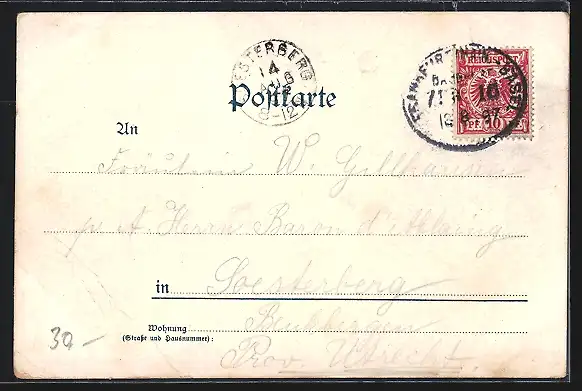 SOESTERBERG
14
AUG
8-12
Postkarte
FRANKFURT BASEL
REICHSPOST
PF. 10 PF.
An
Fräulein W.
p A. Herrn Baron d'Ablaing
in Soesterberg
Prov. Utrecht.
Wohnung
(Straße und Hausnummer):
30 -